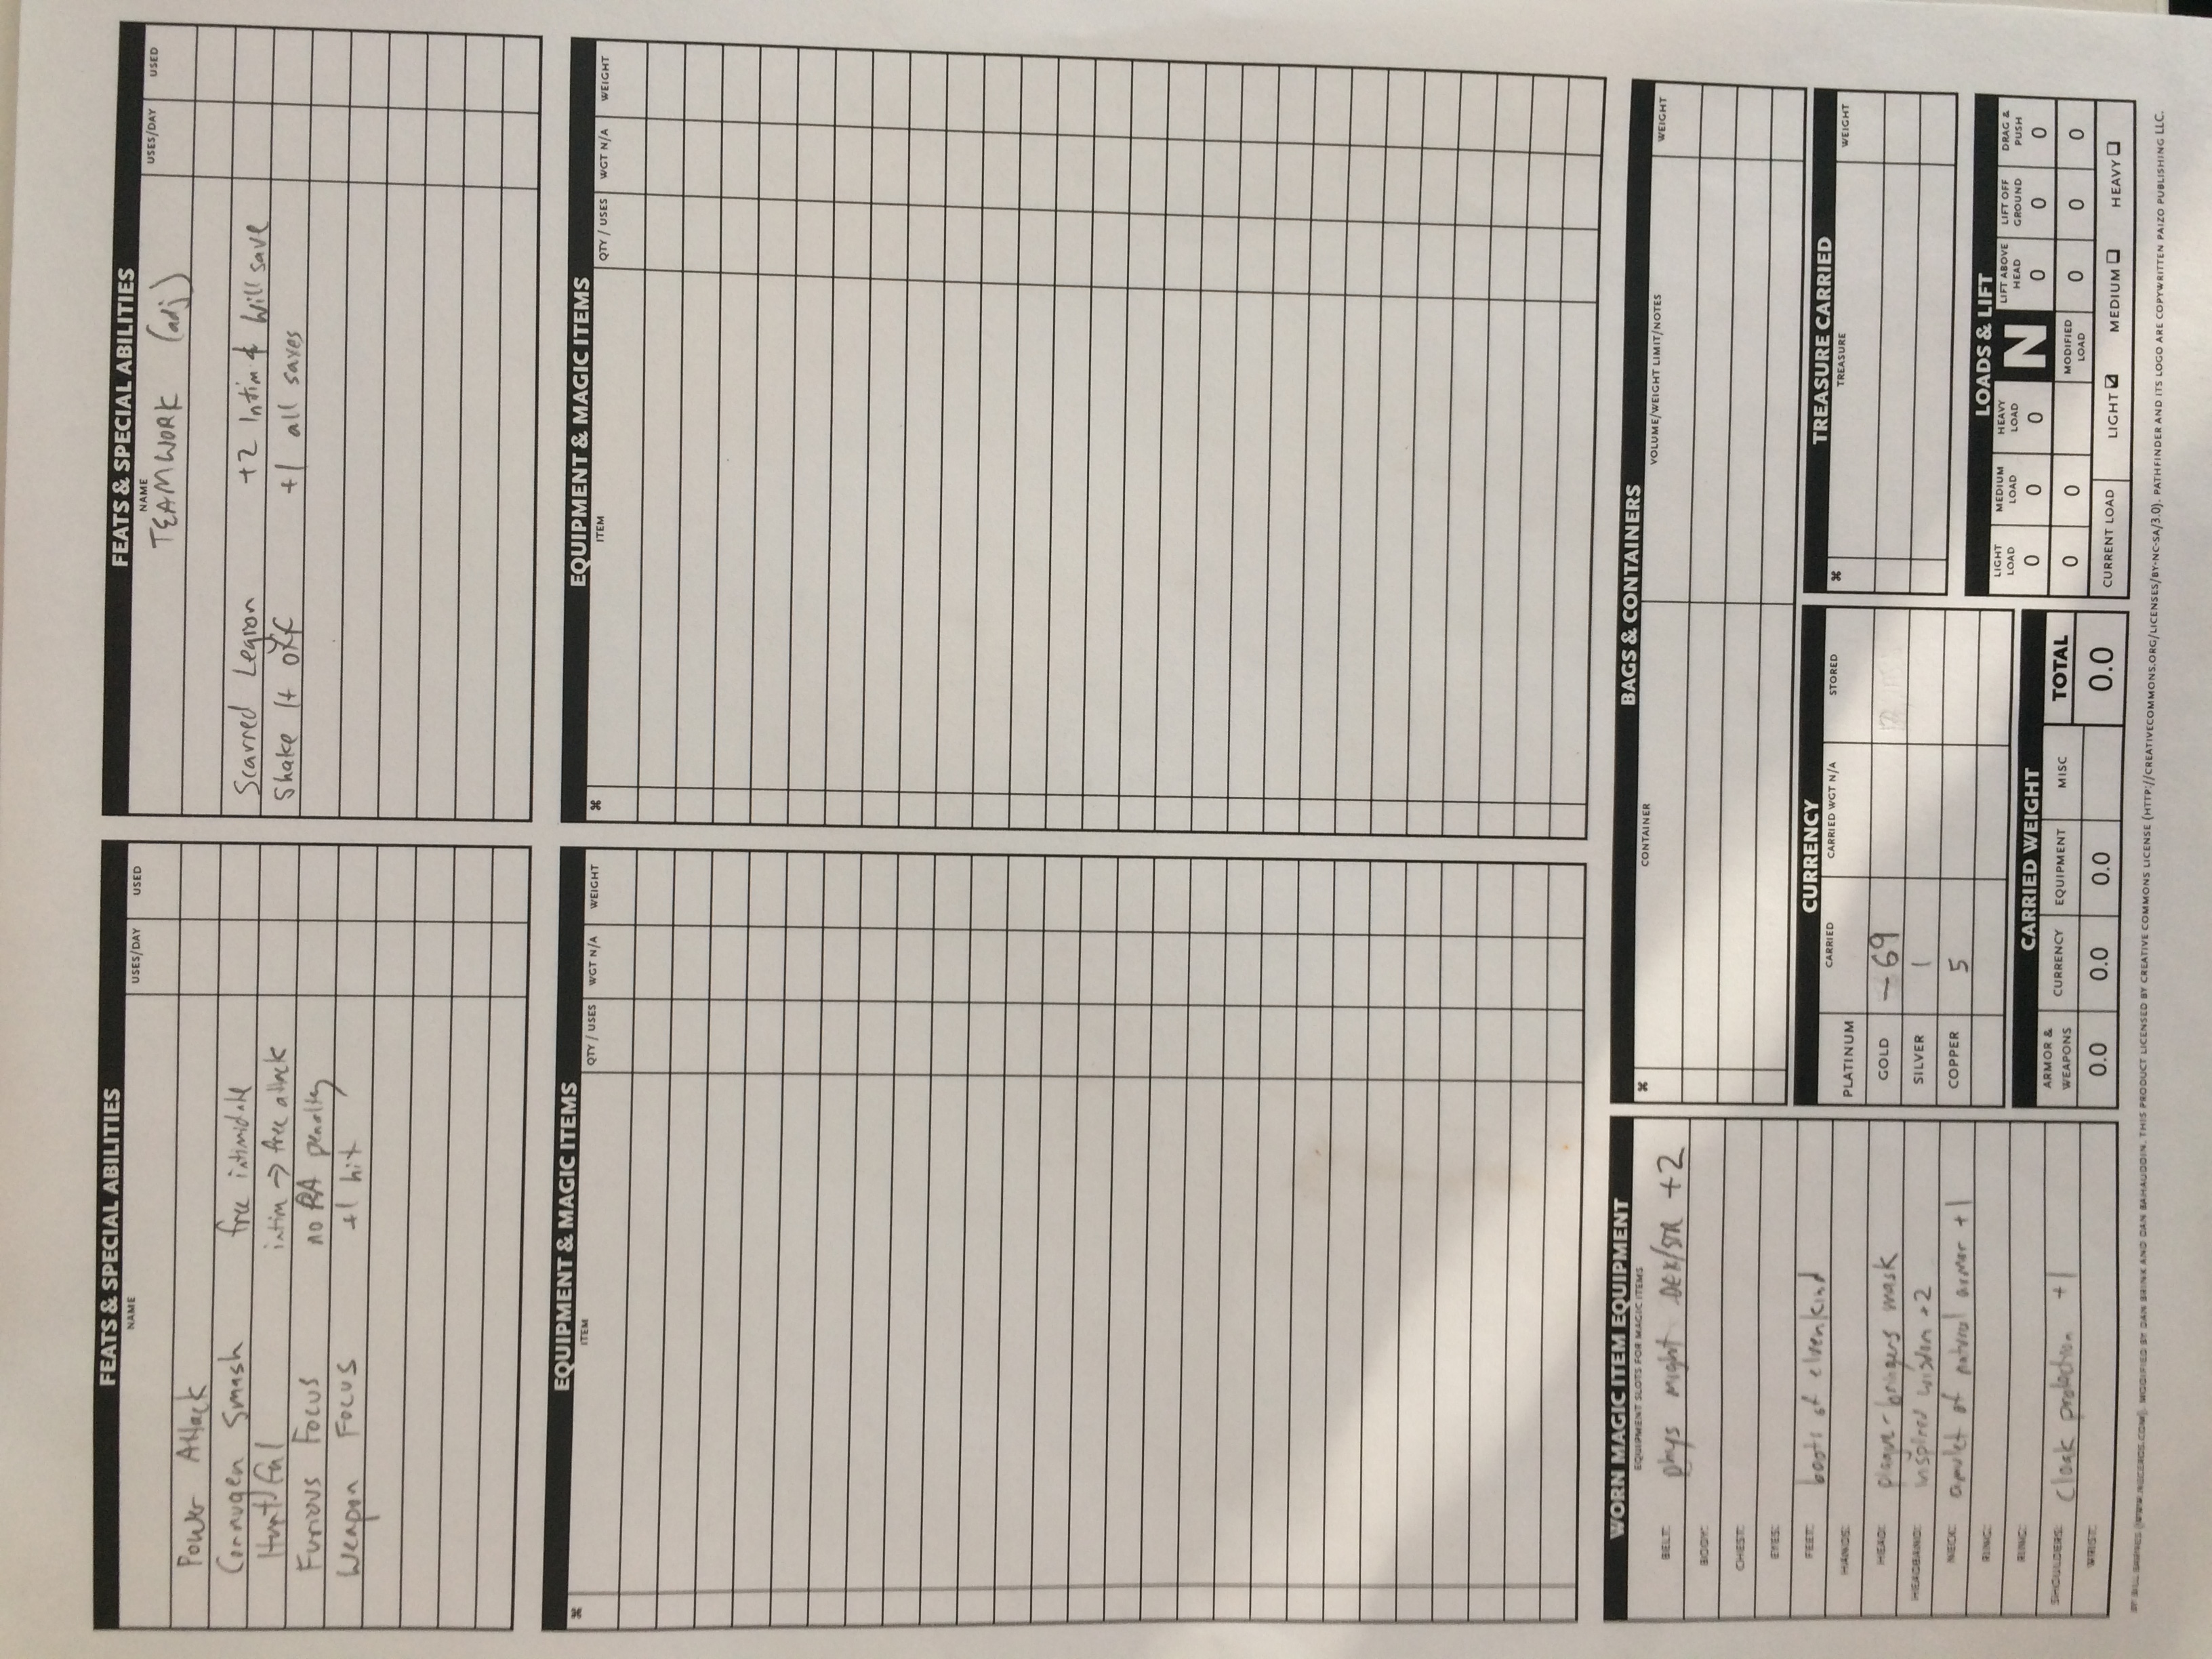 FEATS & SPECIAL ABILITIES
NAME USES/DAY USED
Power Attack
Cornugen Smash free intimidate
Hurtful intim → free attack
Furious Focus no PA penalty
Weapon Focus +1 hit
FEATS & SPECIAL ABILITIES
NAME USES/DAY USED
TEAMWORK (adj)
Scarred Legion +2 Intim & Will save
Shake It off +1 all saves
EQUIPMENT & MAGIC ITEMS
⌘ ITEM QTY / USES WGT N/A WEIGHT
EQUIPMENT & MAGIC ITEMS
⌘ ITEM QTY / USES WGT N/A WEIGHT
WORN MAGIC ITEM EQUIPMENT
EQUIPMENT SLOTS FOR MAGIC ITEMS
BELT: phys might DEX/STR +2
BODY:
CHEST:
EYES:
FEET: boots of elvenkind
HANDS:
HEAD: plague-bringers mask
HEADBAND: inspired wisdom +2
NECK: amulet of natural armor +1
RING:
RING:
SHOULDERS: cloak protection +1
WRIST:
BAGS & CONTAINERS
⌘ CONTAINER VOLUME/WEIGHT LIMIT/NOTES WEIGHT
CURRENCY
CARRIED CARRIED WGT N/A STORED
PLATINUM
GOLD -69
SILVER 1
COPPER 5
TREASURE CARRIED
⌘ TREASURE WEIGHT
CARRIED WEIGHT
ARMOR & WEAPONS CURRENCY EQUIPMENT MISC TOTAL
0.0 0.0 0.0 0.0
LOADS & LIFT
LIGHT LOAD MEDIUM LOAD HEAVY LOAD N LIFT ABOVE HEAD LIFT OFF GROUND DRAG & PUSH
0 0 0 0 0 0
0 0 MODIFIED LOAD 0 0 0
CURRENT LOAD LIGHT ☑ MEDIUM ☐ HEAVY ☐
BY BILL BARNES (WWW.NECEROS.COM). MODIFIED BY DAN BRINK AND DAN BAHAUDDIN. THIS PRODUCT LICENSED BY CREATIVE COMMONS LICENSE (HTTP://CREATIVECOMMONS.ORG/LICENSES/BY-NC-SA/3.0). PATHFINDER AND ITS LOGO ARE COPYWRITTEN PAIZO PUBLISHING LLC.